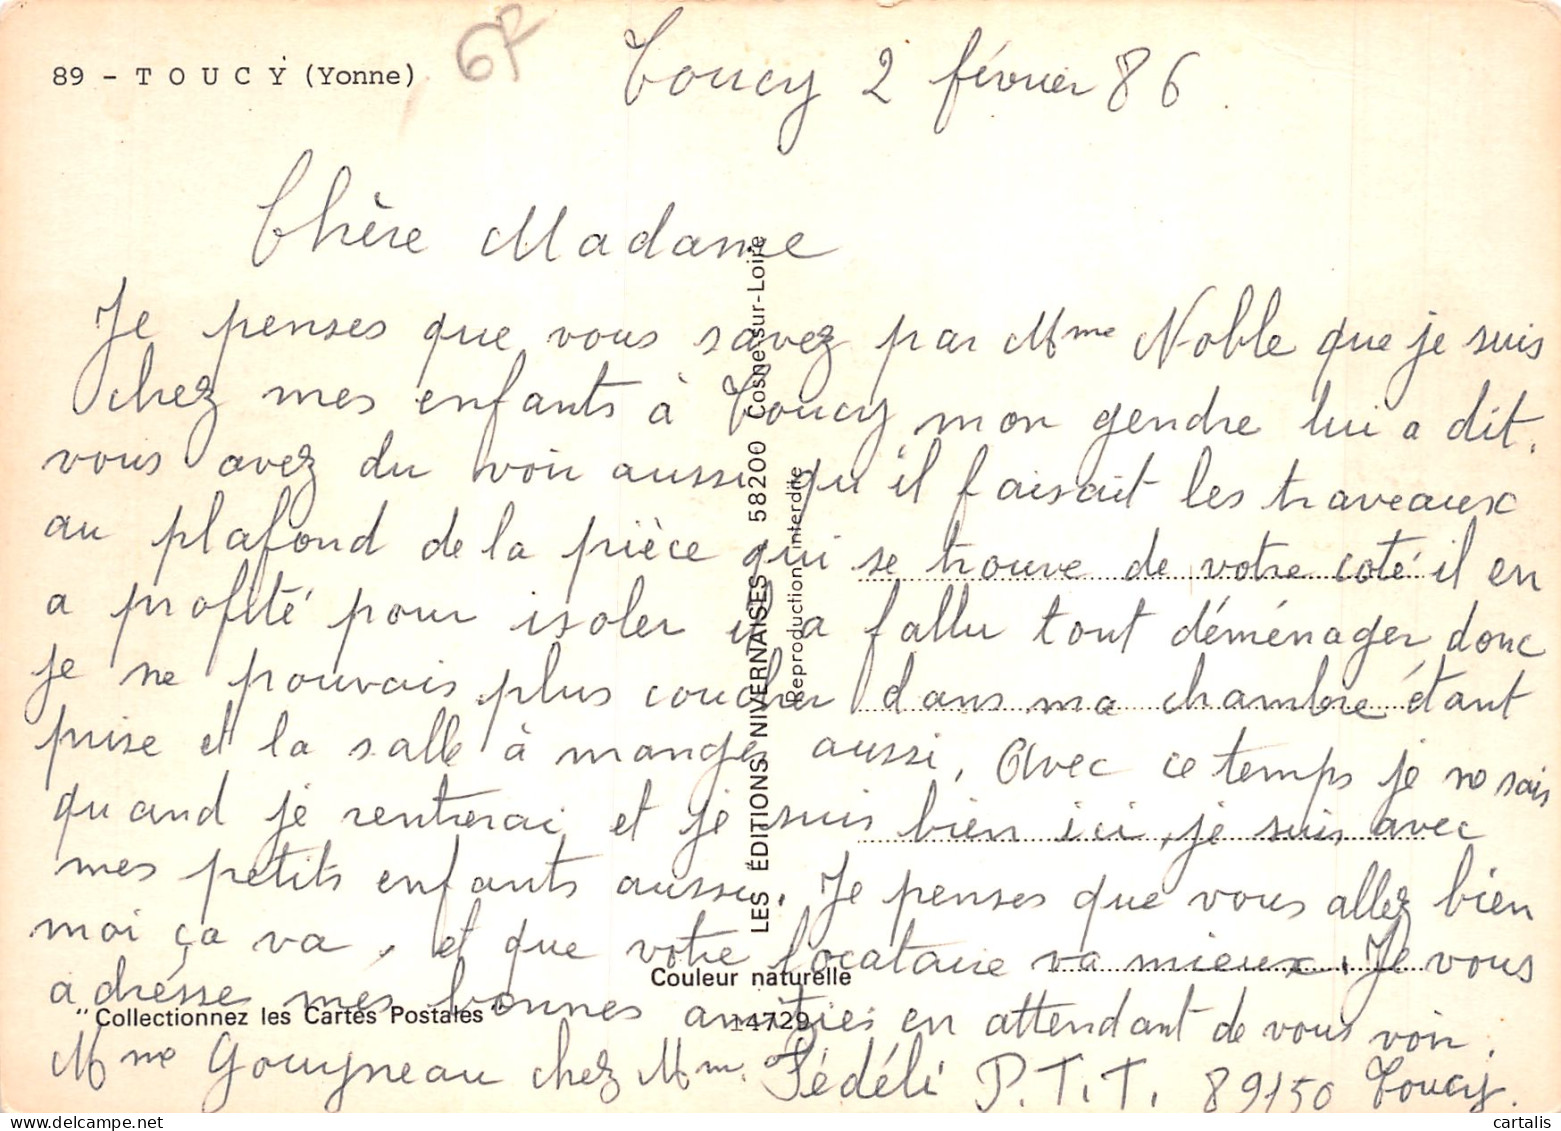 89 - TOUCY (Yonne)
67
Toucy 2 février 86.
Chère Madame
Je penses que vous savez par Mme Noble que je suis
chez mes enfants à Toucy mon gendre lui a dit.
vous avez du voir aussi qu'il faisait les traveaux
au plafond de la pièce qui se trouve de votre coté il en
a profité pour isoler il a fallu tout déménager donc
je ne pouvais plus coucher dans ma chambre étant
prise et la salle à manger aussi. Avec ce temps je ne sais
quand je rentrerai et je suis bien ici, je suis avec
mes petits enfants aussi. Je penses que vous allez bien
moi ça va, et que votre locataire va mieux. Je vous
adrésse més bonnes amitiés en attendant de vous voir.
Mme Gouyneau chez Mm. Fédéli P.T.T. 89150 Toucy.
LES ÉDITIONS NIVERNAISES 58200 Cosne-sur-Loire
Reproduction interdite
Couleur naturelle
"Collectionnez les Cartes Postales"
14729
cartalis